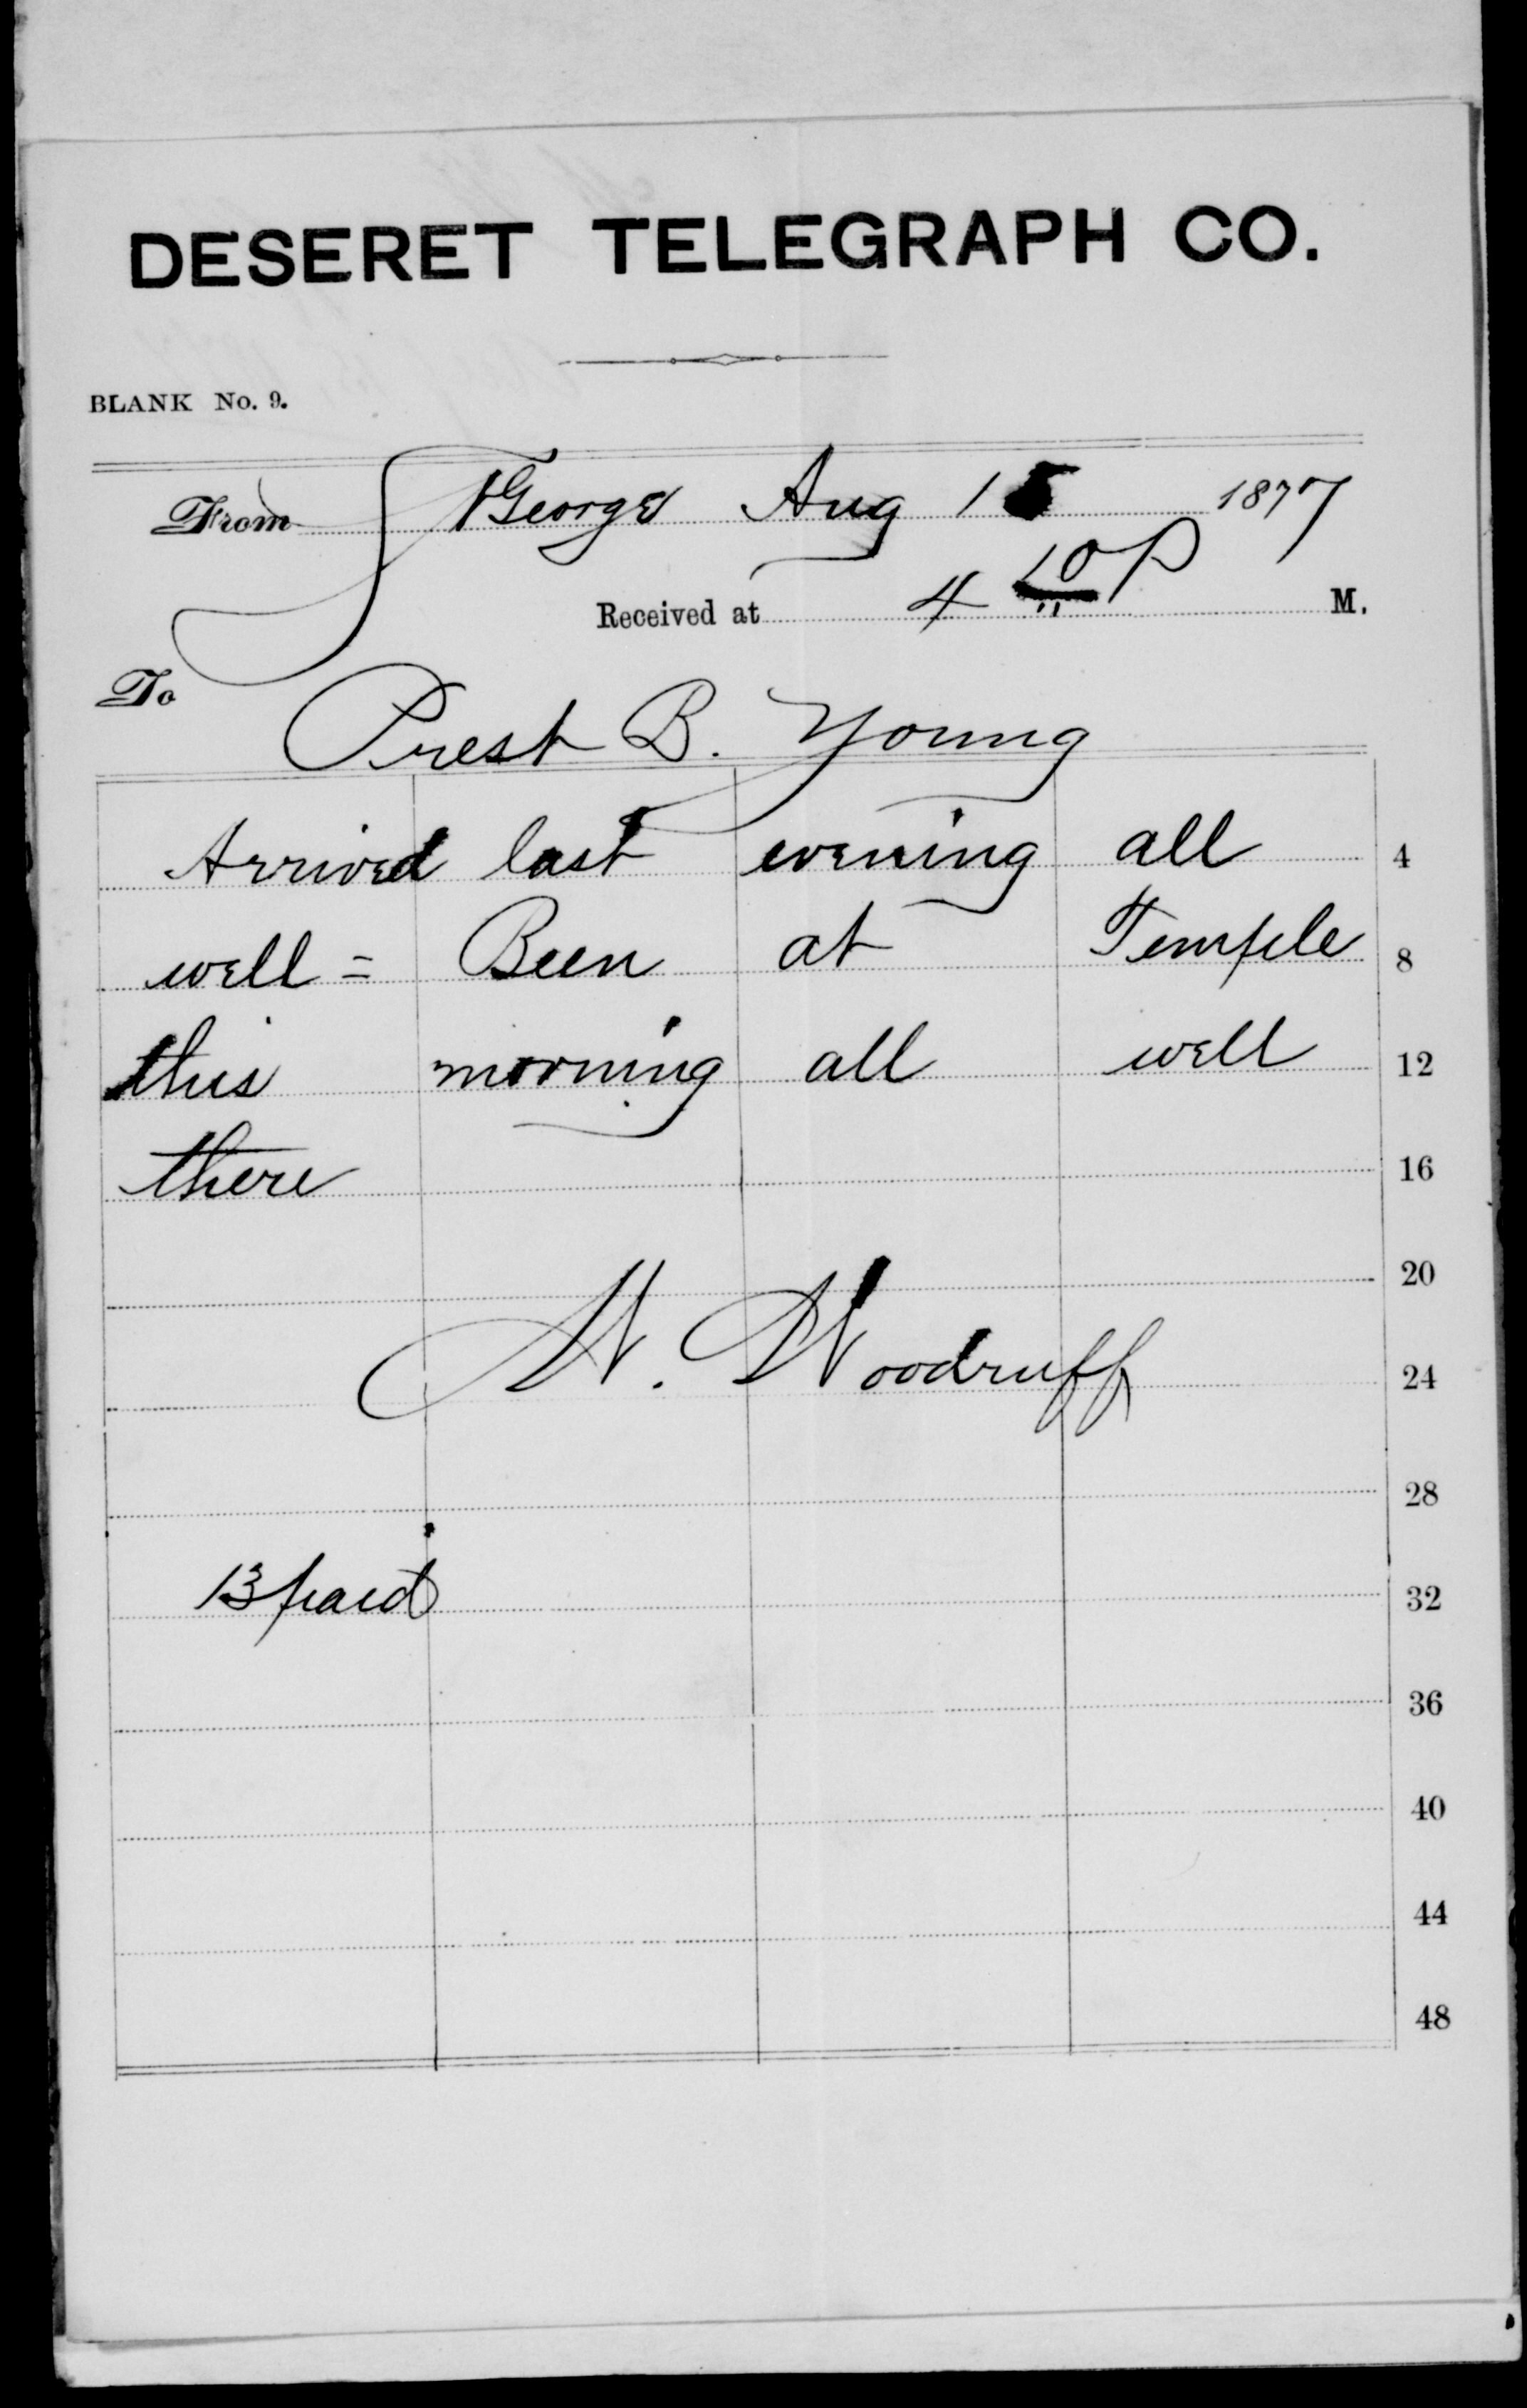 DESERET TELEGRAPH CO.
BLANK No. 9.
From St George Aug 15 1877
Received at 4 10 P M.
To Prest B. Young
Arrived last evening all 4
well = Been at Temple 8
this morning all well 12
there 16
20
W. Woodruff 24
28
13 paid 32
36
40
44
48